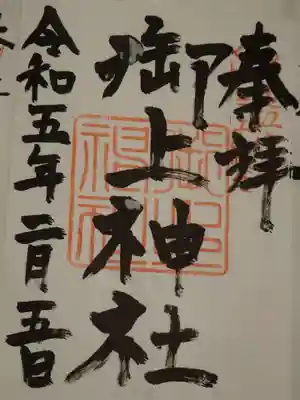 奉拝
御上神社
令和五年二月五日